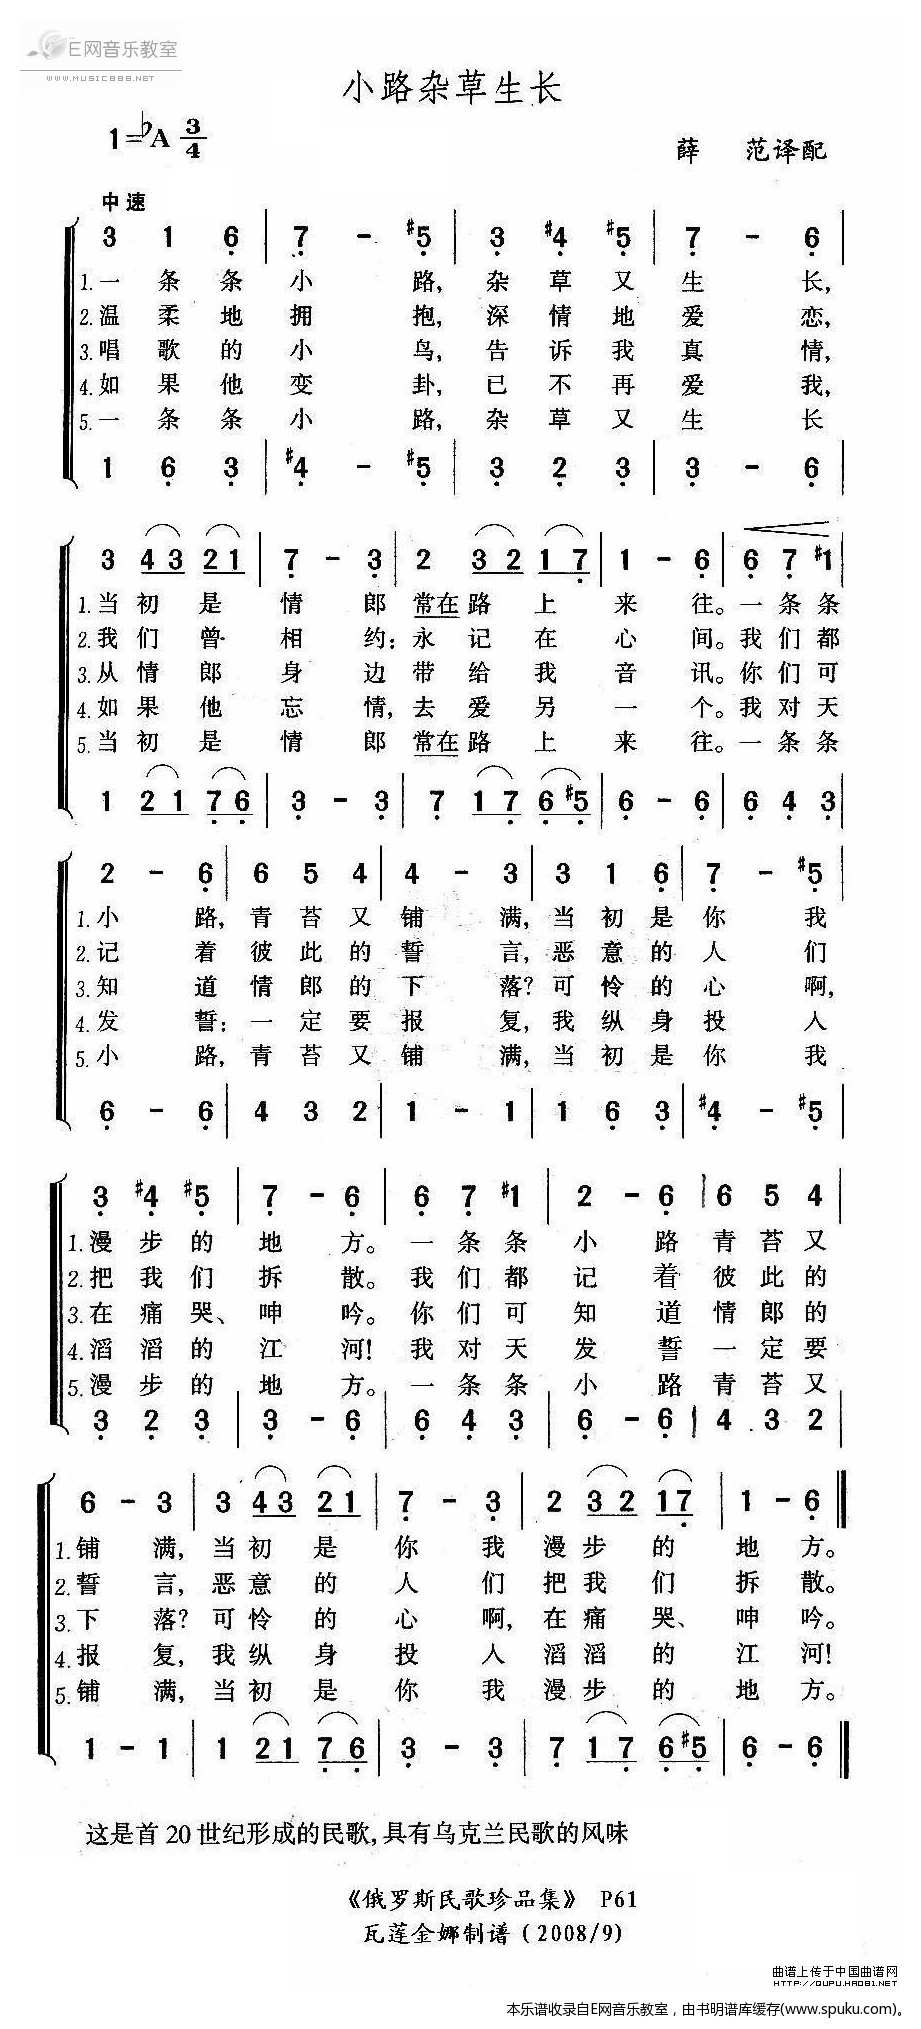 E网音乐教室
WWW.MUSIC888.NET
小路杂草生长
1=♭A 3/4
薛 范译配
中速
3 1 6 | 7 - #5 | 3 #4 #5 | 7 - 6
1.一条条小路,杂草又生长,
2.温柔地拥抱,深情地爱恋,
3.唱歌的小鸟,告诉我真情,
4.如果他变卦,已不再爱我,
5.一条条小路,杂草又生长
1 6 3 | #4 - #5 | 3 2 3 | 3 - 6
3 43 21 | 7 - 3 | 2 32 17 | 1 - 6 | 6 7 #1
1.当初是情郎常在路上来往。一条条
2.我们曾相约;永记在心间。我们都
3.从情郎身边带给我音讯。你们可
4.如果他忘情,去爱另一个。我对天
5.当初是情郎常在路上来往。一条条
1 21 76 | 3 - 3 | 7 17 6#5 | 6 - 6 | 6 4 3
2 - 6 | 6 5 4 | 4 - 3 | 3 1 6 | 7 - #5
1.小路,青苔又铺满,当初是你我
2.记着彼此的誓言,恶意的人们
3.知道情郎的下落?可怜的心啊,
4.发誓:一定要报复,我纵身投人
5.小路,青苔又铺满,当初是你我
6 - 6 | 4 3 2 | 1 - 1 | 1 6 3 | #4 - #5
3 #4 #5 | 7 - 6 | 6 7 #1 | 2 - 6 | 6 5 4
1.漫步的地方。一条条小路青苔又
2.把我们拆散。我们都记着彼此的
3.在痛哭、呻吟。你们可知道情郎的
4.滔滔的江河!我对天发誓一定要
5.漫步的地方。一条条小路青苔又
3 2 3 | 3 - 6 | 6 4 3 | 6 - 6 | 4 3 2
6 - 3 | 3 43 21 | 7 - 3 | 2 32 17 | 1 - 6
1.铺满,当初是你我漫步的地方。
2.誓言,恶意的人们把我们拆散。
3.下落?可怜的心啊,在痛哭、呻吟。
4.报复,我纵身投人滔滔的江河!
5.铺满,当初是你我漫步的地方。
1 - 1 | 1 21 76 | 3 - 3 | 7 17 6#5 | 6 - 6
这是首20世纪形成的民歌,具有乌克兰民歌的风味
《俄罗斯民歌珍品集》 P61
瓦莲金娜制谱(2008/9)
曲谱上传于中国曲谱网
http://QUPU.HAO81.NET
本乐谱收录自E网音乐教室，由书明谱库缓存(www.spuku.com)。